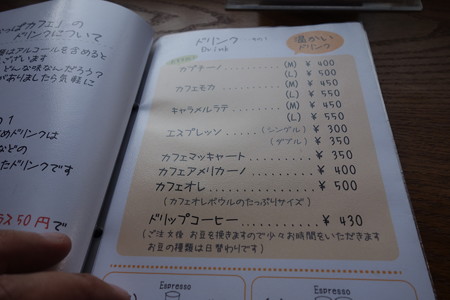 っぱカフェ！の
ドリンクについて
はアルコールを含めると
ございます
どんな味なんだろう？
がおりましたら気軽に
の1
めドリンクは
などの
たドリンクです
ラス50円で
ドリンク
Drink
温かい
ドリンク
カプチーノ (M) ¥ 400
(L) ¥ 500
カフェモカ (M) ¥ 450
(L) ¥ 550
キャラメルラテ (M) ¥ 450
(L) ¥ 550
エスプレッソ (シングル) ¥ 300
(ダブル) ¥ 350
カフェマッキャート ¥ 350
カフェアメリカーノ ¥ 400
カフェオレ ¥ 500
(カフェオレボウルのたっぷりサイズ)
ドリップコーヒー ¥ 430
(ご注文後 お豆を挽きますので少々お時間をいただきます
お豆の種類は日替わりです)
Espresso
Espresso